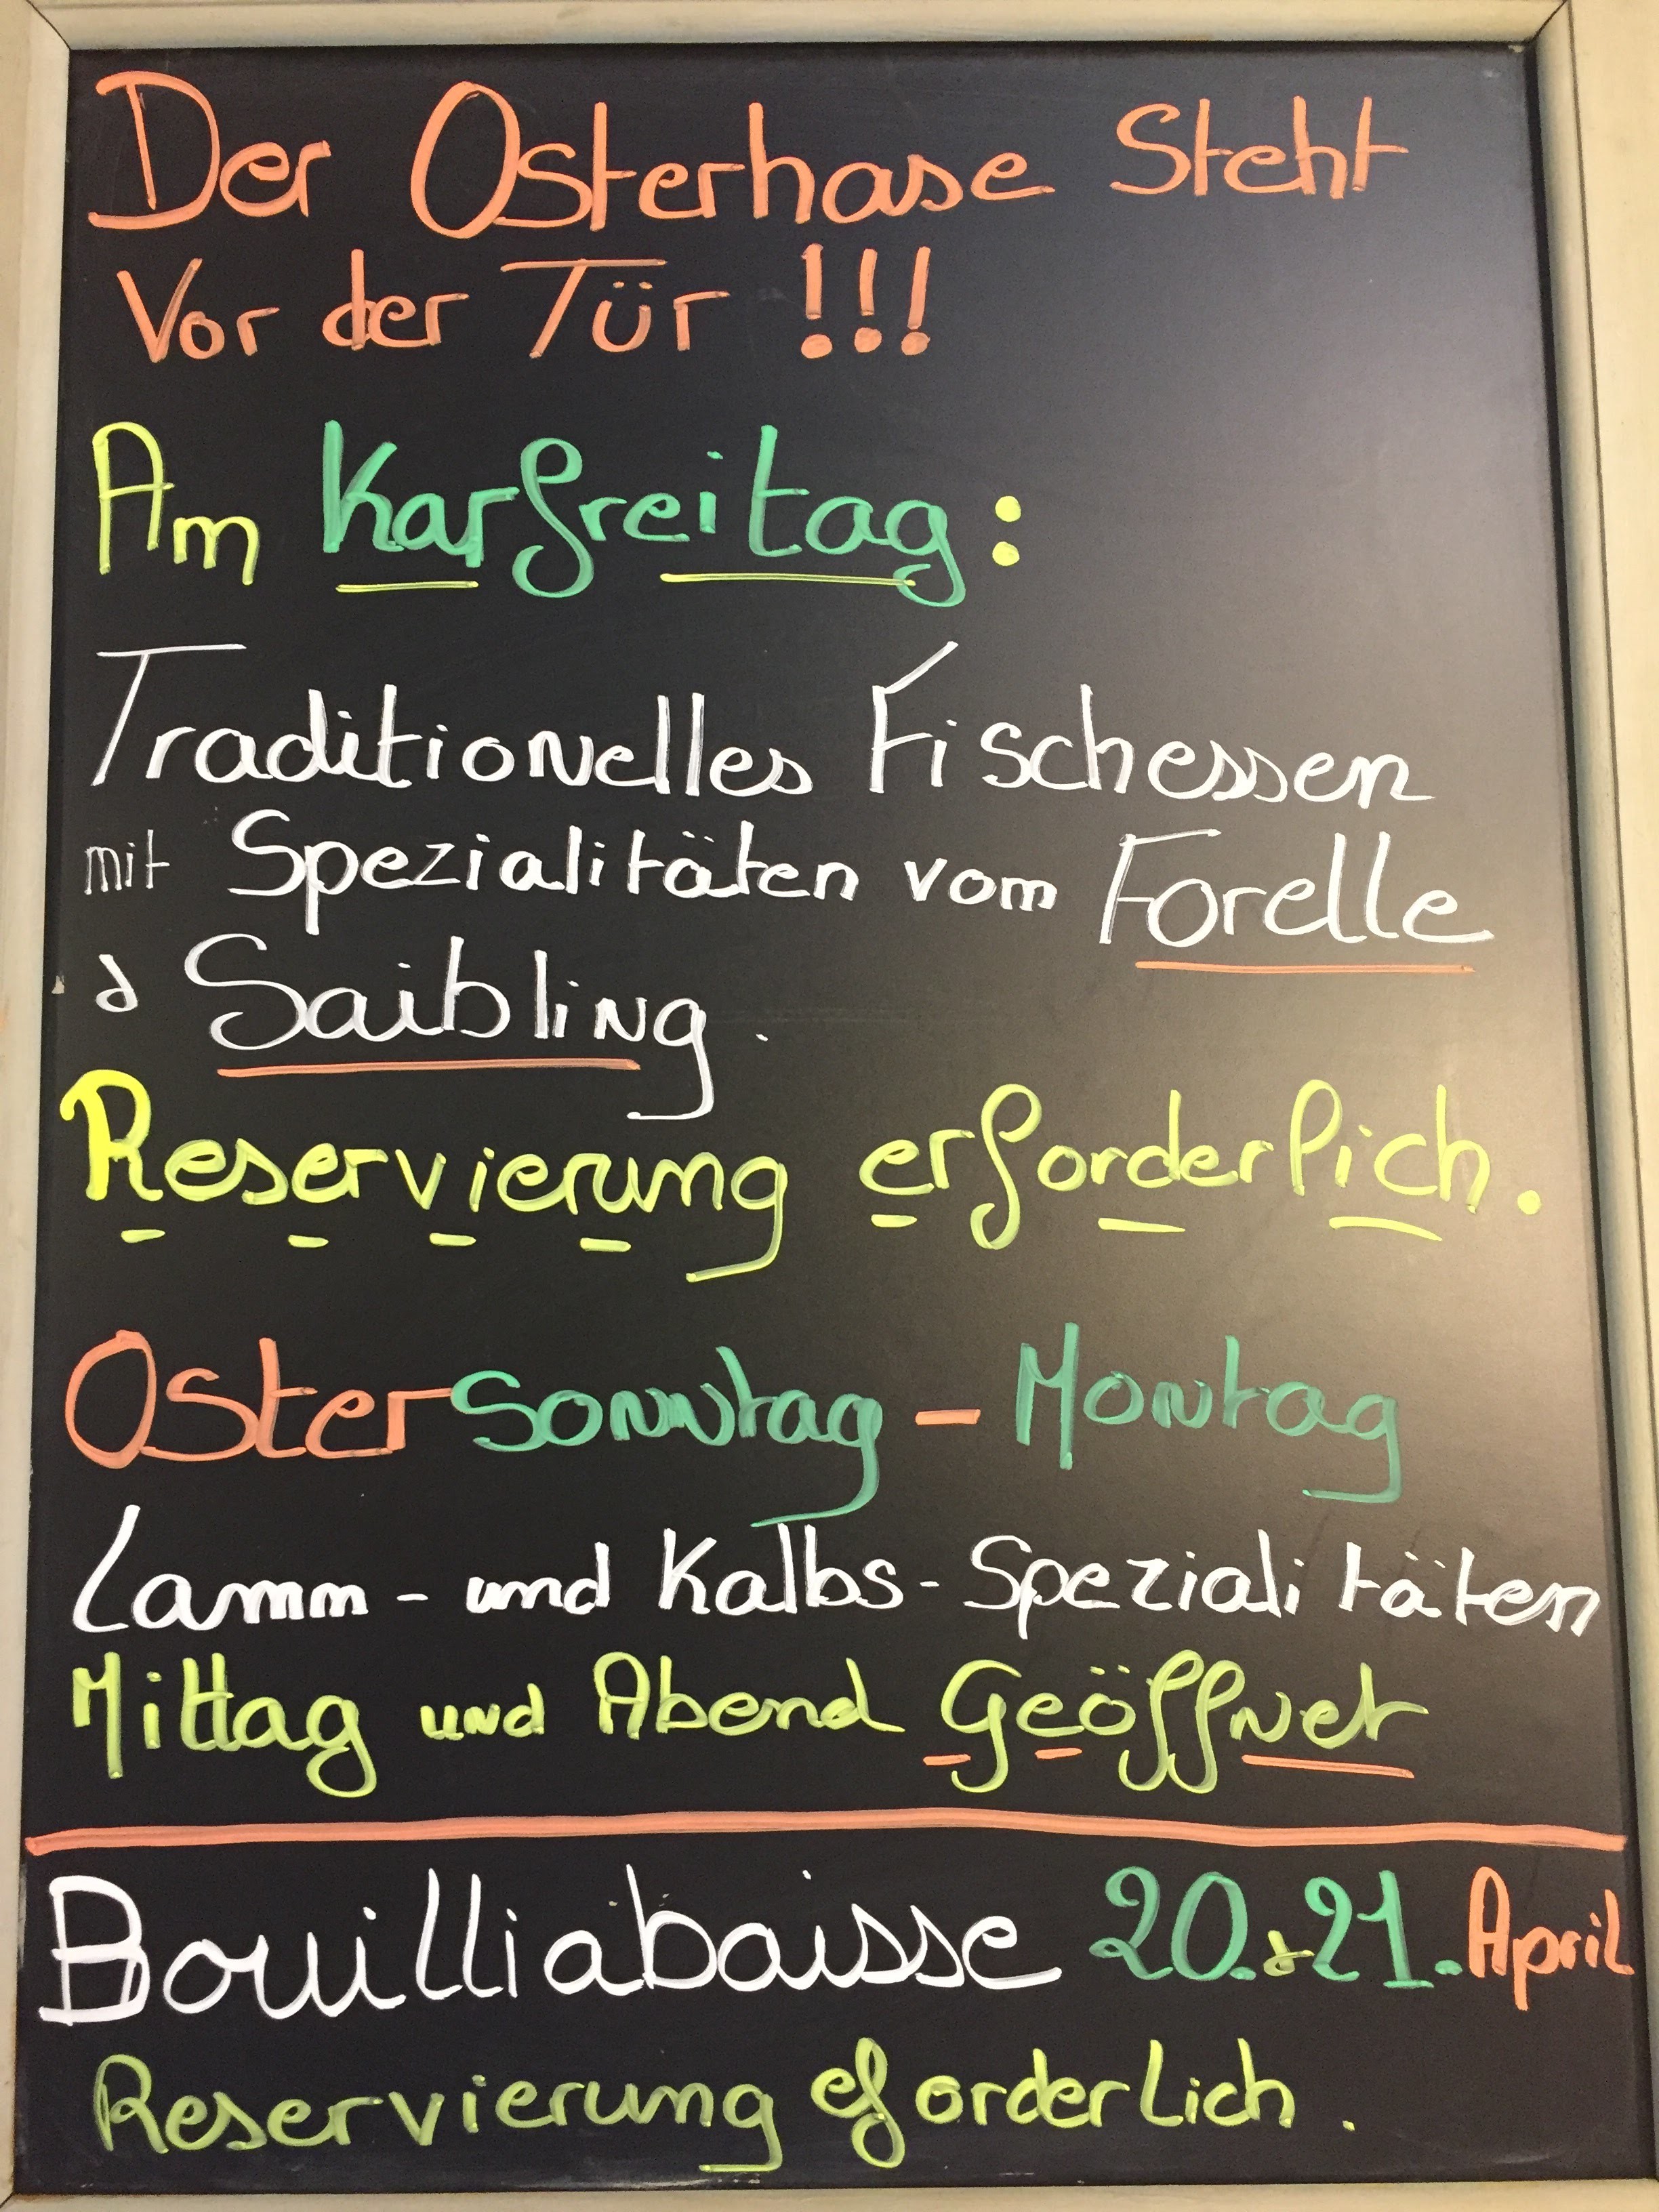 Der Osterhase Steht
Vor der Tür !!!
Am Karfreitag :
Traditionelles Fischessen
mit Spezialitäten vom Forelle
& Saibling .
Reservierung erforderlich .
Ostersonntag - Montag
Lamm - und Kalbs - Spezialitäten
Mittag und Abend Geöffnet
Bouilliabaisse 20. & 21. April
Reservierung eforderlich .